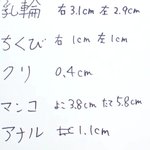 乳輪 右3.1cm 左2.9cm
ちくび 右1cm 左1cm
クリ 0.4cm
マンコ よこ3.8cm たて5.8cm
アナル 1.1cm